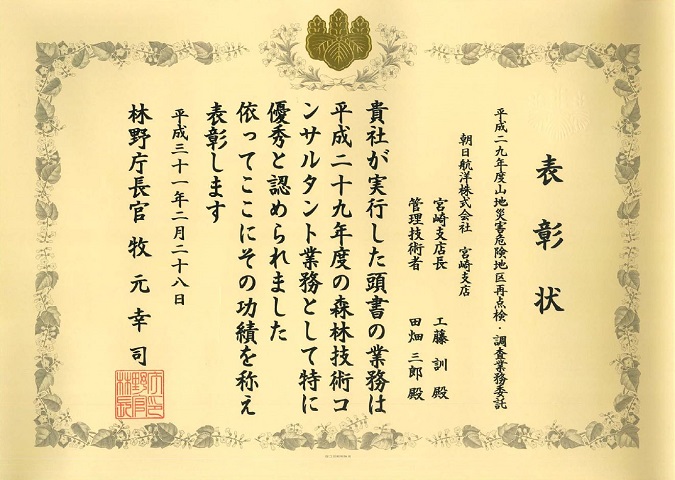 表彰状
平成二九年度山地災害危険地区再点検・調査業務委託
朝日航洋株式会社 宮崎支店
宮崎支店長 工藤 訓 殿
管理技術者 田畑 三郎 殿
貴社が実行した頭書の業務は
平成二十九年度の森林技術コ
ンサルタント業務として特に
優秀と認められました
依ってここにその功績を称え
表彰します
平成三十一年二月二十八日
林野庁長官 牧元幸司